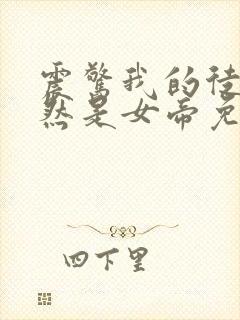 震惊我的徒
然是女帝免
四下里